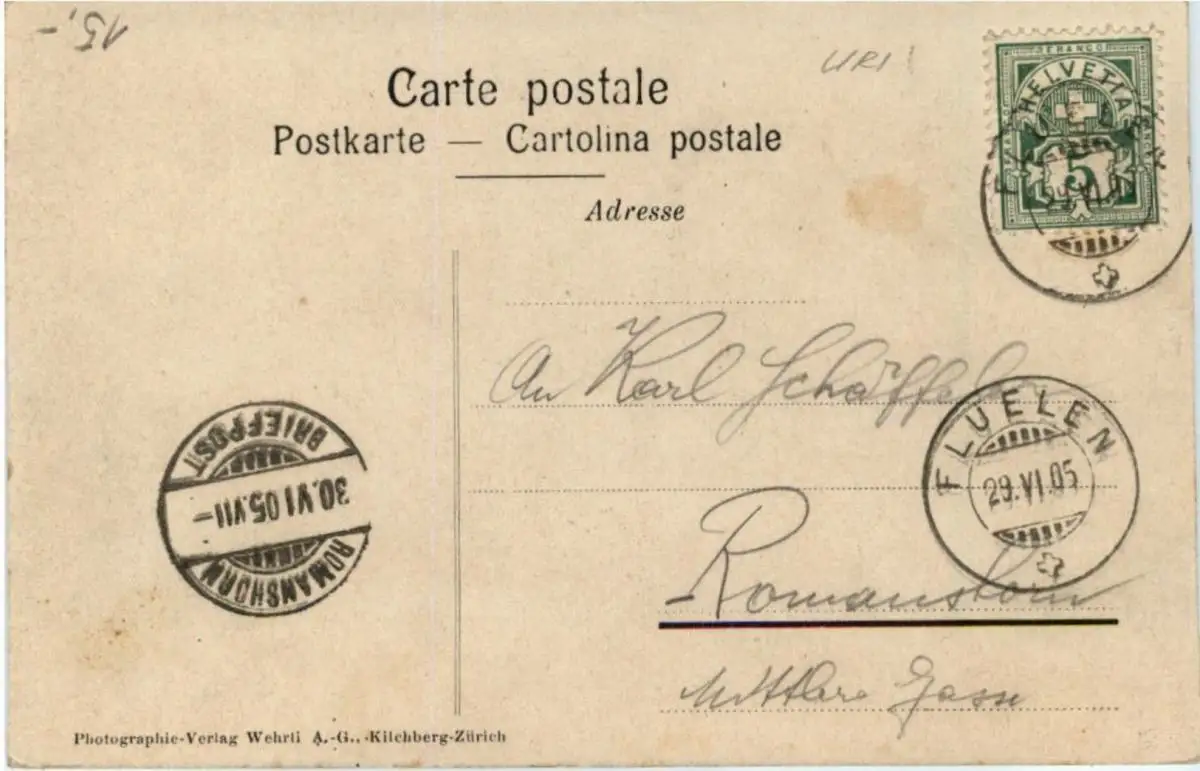 15,-
URI
Carte postale
Postkarte — Cartolina postale
Adresse
FRANCO
HELVETIA
5
FLUELEN
29.VI.0
An Karl
FLUELEN
29.VI.05
Romanshorn
Mittlere Gasse
ROMANSHORN
30.VI.05.VII-
BRIEFPOST
Photographie-Verlag Wehrli A.-G., Kilchberg-Zürich